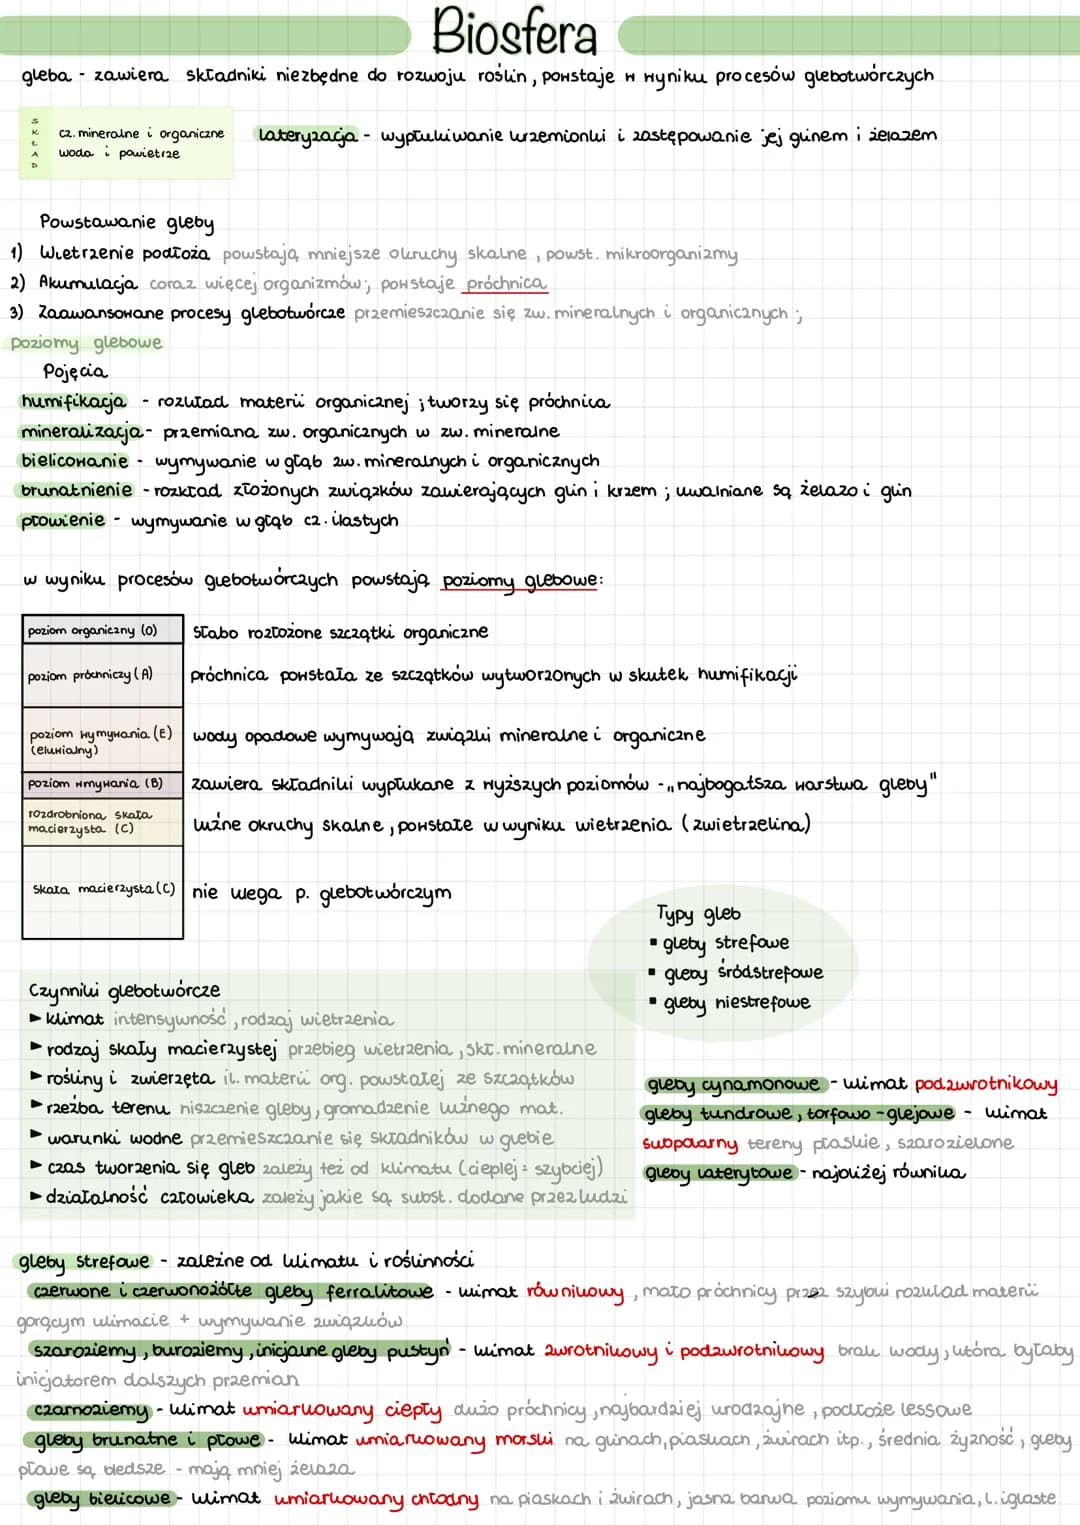 Biosfera
gleba - zawiera składniki niezbędne do rozwoju roślin, powstaje w wyniku procesów glebotwórczych
SKŁAD
cz. mineralne i organiczne
woda i powietrze
lateryzacja - wypłukiwanie krzemionki i zastępowanie jej glinem i żelazem
Powstawanie gleby
1) Wietrzenie podłoża powstają mniejsze okruchy skalne, powst. mikroorganizmy
2) Akumulacja coraz więcej organizmów; powstaje próchnica
3) Zaawansowane procesy glebotwórcze przemieszczanie się zw. mineralnych i organicznych;
poziomy glebowe
Pojęcia
humifikacja - rozkład materii organicznej; tworzy się próchnica
mineralizacja - przemiana zw. organicznych w zw. mineralne
bielicowanie - wymywanie w głąb zw. mineralnych i organicznych
brunatnienie - rozkład złożonych związków zawierających glin i krzem; uwalniane są żelazo i glin
płowienie - wymywanie w głąb cz. ilastych
w wyniku procesów glebotwórczych powstają poziomy glebowe:
poziom organiczny (O) słabo rozłożone szczątki organiczne
poziom próchniczy (A) próchnica powstała ze szczątków wytworzonych w skutek humifikacji
poziom wymywania (E) wody opadowe wymywają związki mineralne i organiczne
(eluwialny)
poziom wmywania (B) zawiera składniki wypłukane z wyższych poziomów - „najbogatsza warstwa gleby"
rozdrobniona skała
macierzysta (C) luźne okruchy skalne, powstałe w wyniku wietrzenia (zwietrzelina)
Skała macierzysta (C) nie ulega p. glebotwórczym
Typy gleb
▪ gleby strefowe
▪ gleby śródstrefowe
▪ gleby niestrefowe
Czynniki glebotwórcze
► klimat intensywność, rodzaj wietrzenia
► rodzaj skały macierzystej przebieg wietrzenia, skł. mineralne
► rośliny i zwierzęta il. materii org. powstałej ze szczątków
► rzeźba terenu niszczenie gleby, gromadzenie luźnego mat.
► warunki wodne przemieszczanie się składników w glebie
► czas tworzenia się gleb zależy też od klimatu (cieplej = szybciej)
► działalność człowieka zależy jakie są subst. dodane przez ludzi
gleby cynamonowe - klimat podzwrotnikowy
gleby tundrowe, torfowo-glejowe - klimat
subpolarny tereny płaskie, szarozielone
gleby laterytowe - najbliżej równika
gleby strefowe - zależne od klimatu i roślinności
czerwone i czerwonożółte gleby ferralitowe - klimat równikowy, mało próchnicy przez szybki rozkład materii
gorącym klimacie + wymywanie związków
szaroziemy, buroziemy, inicjalne gleby pustyń - klimat zwrotnikowy i podzwrotnikowy brak wody, która byłaby
inicjatorem dalszych przemian
czarnoziemy - klimat umiarkowany ciepły dużo próchnicy, najbardziej urodzajne, podłoże lessowe
gleby brunatne i płowe - klimat umiarkowany morski na glinach, piaskach, żwirach itp., średnia żyzność, gleby
płowe są bledsze - mają mniej żelaza
gleby bielicowe - klimat umiarkowany chłodny na piaskach i żwirach, jasna barwa poziomu wymywania, l. iglaste